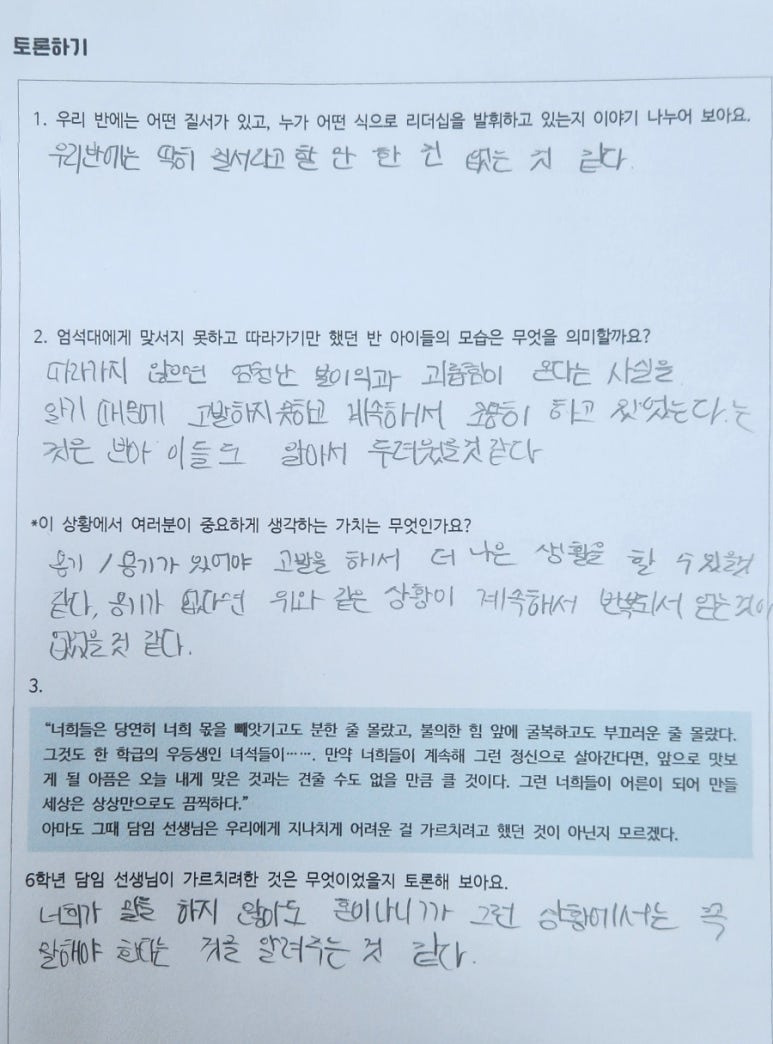 토론하기
1. 우리 반에는 어떤 질서가 있고, 누가 어떤 식으로 리더십을 발휘하고 있는지 이야기 나누어 보아요.
우리반에는 딱히 질서라고 할 만 한 건 없는 것 같다.
2. 엄석대에게 맞서지 못하고 따라가기만 했던 반 아이들의 모습은 무엇을 의미할까요?
따라가지 않으면 엄청난 불이익과 괴롭힘이 온다는 사실을
알기 때문에 고발하지 못하고 계속해서 조용히 하고 있었는다.는
것은 반아이들도 알아서 두려웠을것 같다
*이 상황에서 여러분이 중요하게 생각하는 가치는 무엇인가요?
용기 / 용기가 있어야 고발을 해서 더 나은 생활을 할 수 있을것
같다, 용기가 없다면 위와 같은 상황이 계속해서 반복되서 얻는것이
없을것 같다.
3.
“너희들은 당연히 너희 몫을 빼앗기고도 분한 줄 몰랐고, 불의한 힘 앞에 굴복하고도 부끄러운 줄 몰랐다.
그것도 한 학급의 우등생인 녀석들이……. 만약 너희들이 계속해 그런 정신으로 살아간다면, 앞으로 맛보
게 될 아픔은 오늘 내게 맞은 것과는 견줄 수도 없을 만큼 클 것이다. 그런 너희들이 어른이 되어 만들
세상은 상상만으로도 끔찍하다.”
아마도 그때 담임 선생님은 우리에게 지나치게 어려운 걸 가르치려고 했던 것이 아닌지 모르겠다.
6학년 담임 선생님이 가르치려한 것은 무엇이었을지 토론해 보아요.
너희가 하지 않아도 혼이나니까 그런 상황에서는 꼭
말해야 한다는 것을 알려주는 것 같다.